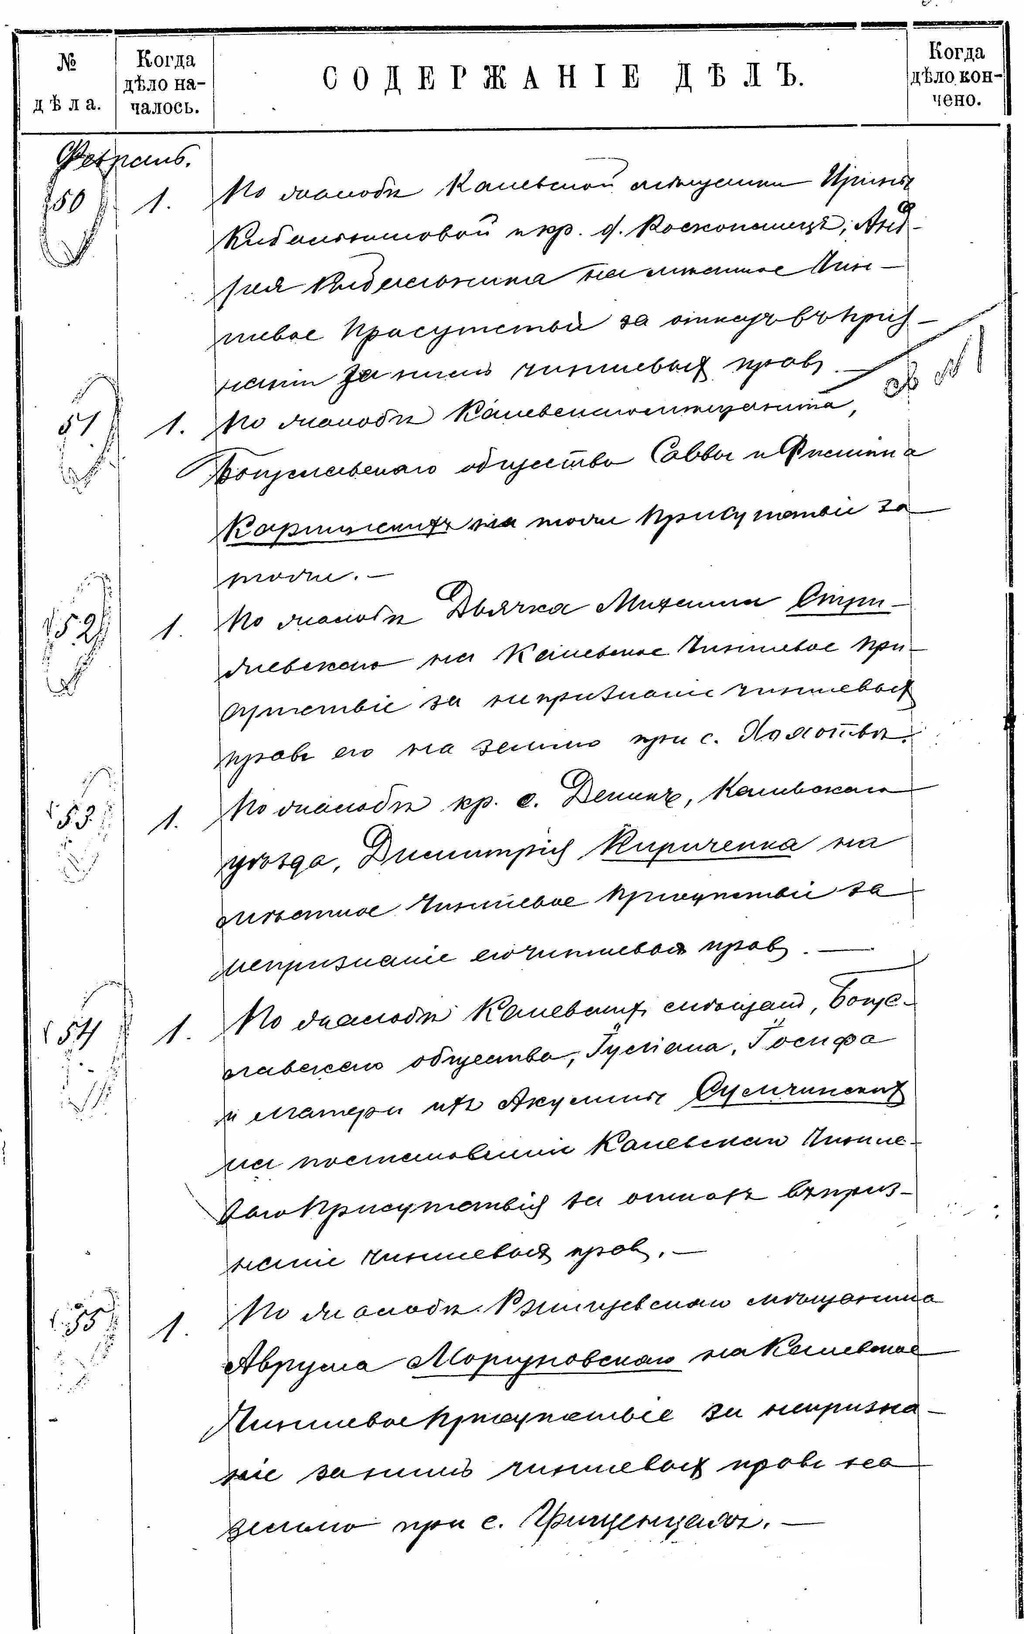 № дѣла.
Когда дѣло на-
чалось.
СОДЕРЖАНІЕ ДѢЛЪ.
Когда дѣло кон-
чено.
Февраль.
50 1. По жалобѣ Каневской мѣщанки Ирины
Кибальниковой и кр. с. Роскопанецъ, Анд-
рея Кибальника на мѣстное Чин-
шевое Присутствіе за отказъ въ приз-
наніи за ними чиншевыхъ правъ. —
№ 1
51 1. По жалобѣ Каневскаго мѣщанина,
Богуславскаго общества Саввы и
на тоже Присутствіе за
тоже. —
52 1. По жалобѣ Дьячка Михаила
на Каневское Чиншевое При-
сутствіе за непризнаніе чиншевыхъ
правъ его на землю при с.
53 1. По жалобѣ кр. с. Каневскаго
уѣзда, Димитрія Кириченка на
мѣстное Чиншевое Присутствіе за
непризнаніе его чиншевыхъ правъ. —
54 1. По жалобѣ Каневскихъ мѣщанъ, Богу-
славскаго общества, Іосифа
и матери ихъ Акулины Сумчинскихъ
на постановленіе Каневскаго Чинше-
ваго Присутствія за отказъ въ приз-
наніи чиншевыхъ правъ. —
55 1. По жалобѣ мѣщанина
Аврума Моргуновскаго на Каневское
Чиншевое Присутствіе за непризна-
ніе за нимъ чиншевыхъ правъ на
землю при с. —